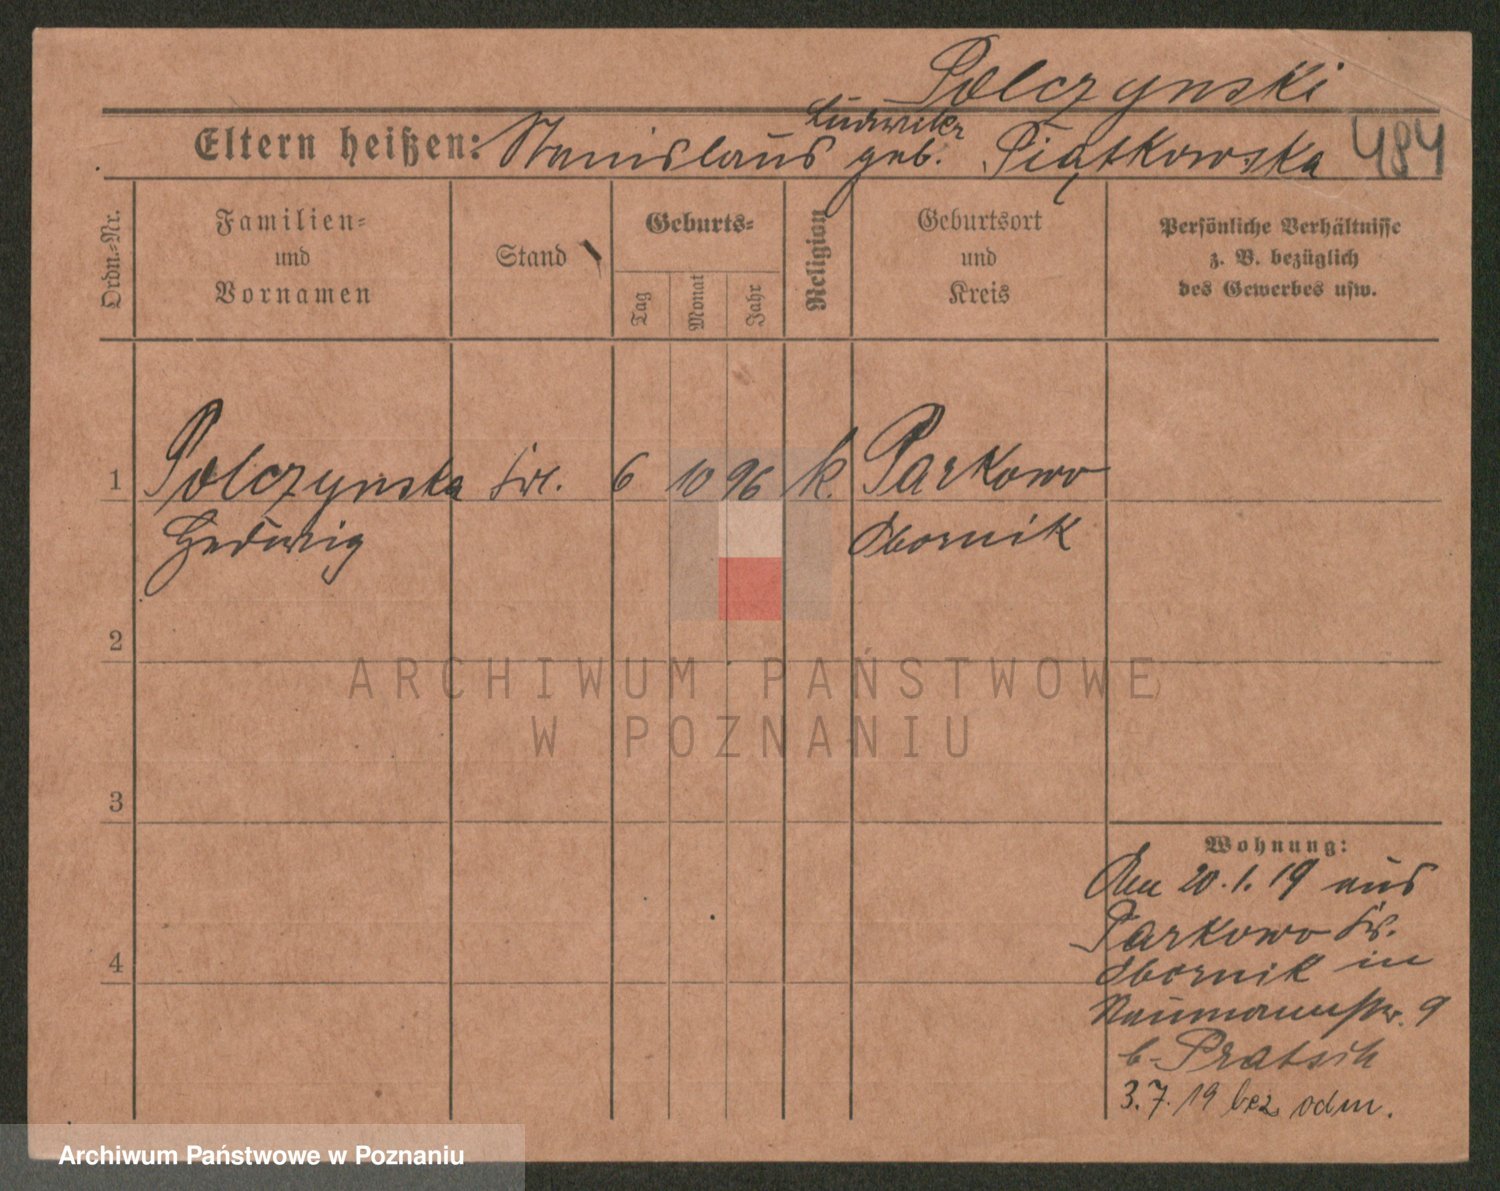 Polczynski
Ludwika
Eltern heißen: Stanislaus geb. Piątkowska 484
Ordn.-Nr.
Familien-
und
Vornamen
Stand
Geburts-
Tag
Monat
Jahr
Religion
Geburtsort
und
Kreis
Persönliche Verhältnisse
z. B. bezüglich
des Gewerbes usw.
1 Polczynska Frl. 6 10 96 k. Parkowo
Hedwig Obornik
2
3
4
Wohnung:
Am 20.1.19 aus
Parkowo Kr.
Obornik in
Naumannstr. 9
b. Pratsch
3.7.19 bez odm.
ARCHIWUM PAŃSTWOWE
W POZNANIU
Archiwum Państwowe w Poznaniu